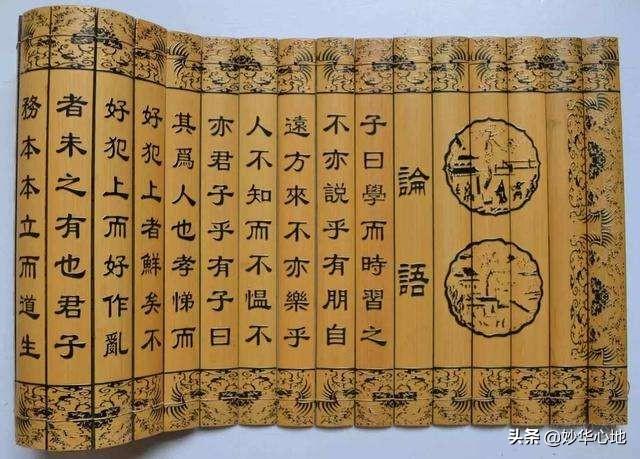 論語
子曰學而時習之
不亦説乎有朋自
遠方來不亦樂乎
人不知而不愠不
亦君子乎有子曰
其爲人也孝悌而
好犯上者鮮矣不
好犯上而好作亂
者未之有也君子
務本本立而道生
头条 @妙华心地